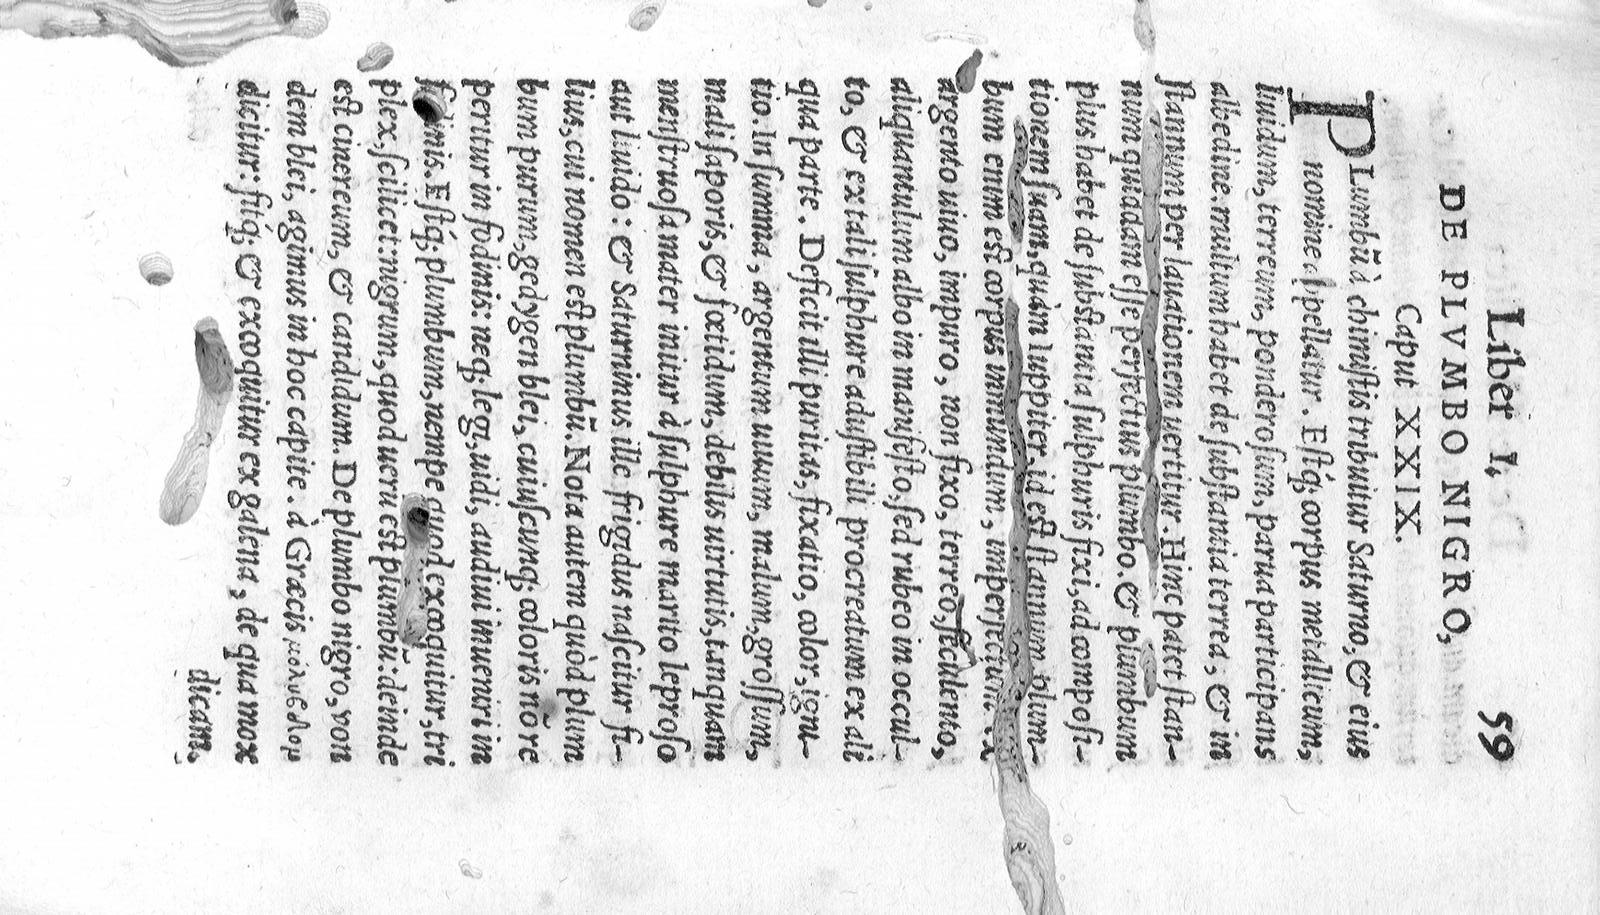 Liber I, 59
DE PLVMBO NIGRO,
Caput XXIX.
PLumbũ à chimiſtis tribuitur Saturno, & eius
nomine appellatur. Eſtq́; corpus metallicum,
liuidum, terreum, ponderoſum, parua participans
albedine. multum habet de ſubſtantia terrea, & in
ſtannum per lauationem uertitur. Hinc patet ſtan-
num quadam eſſe perfectius plumbo. & plumbum
plus habet de ſubſtantia ſulphuris fixi, ad compoſi-
tionem ſuam, quàm Iuppiter, id eſt ſtannum. plum-
bum enim eſt corpus immundum, imperfectum ex
argento uiuo, impuro, non fixo, terreo, feculento,
aliquantulum albo in manifeſto, ſed rubeo in occul-
to, & ex tali ſulphure aduſtibili procreatum ex ali
qua parte. Deficit illi puritas, fixatio, color, igni-
tio. In ſumma, argentum uiuum, malum, groſſum,
mali ſaporis, & fœtidum, debilis uirtutis, tanquam
menſtruoſa mater initur à ſulphure marito leproſo
aut liuido: & Saturninus ille frigidus naſcitur fi-
lius, cui nomen eſt plumbũ. Nota autem quòd plum
bum purum, gedygen blei, cuiuſcunq; coloris nõ re
peritur in fodinis: neq; legi, uidi, audiui inueniri in
fodinis. Eſtq́; plumbum, nempe quod excoquitur, tri
plex, ſcilicet: nigrum, quod uerũ eſt plumbũ: deinde
eſt cinereum, & candidum. De plumbo nigro, von
dem blei, agimus in hoc capite. à Græcis μόλυβδος
dicitur: fitq́; & excoquitur ex galena, de qua mox
dicam,